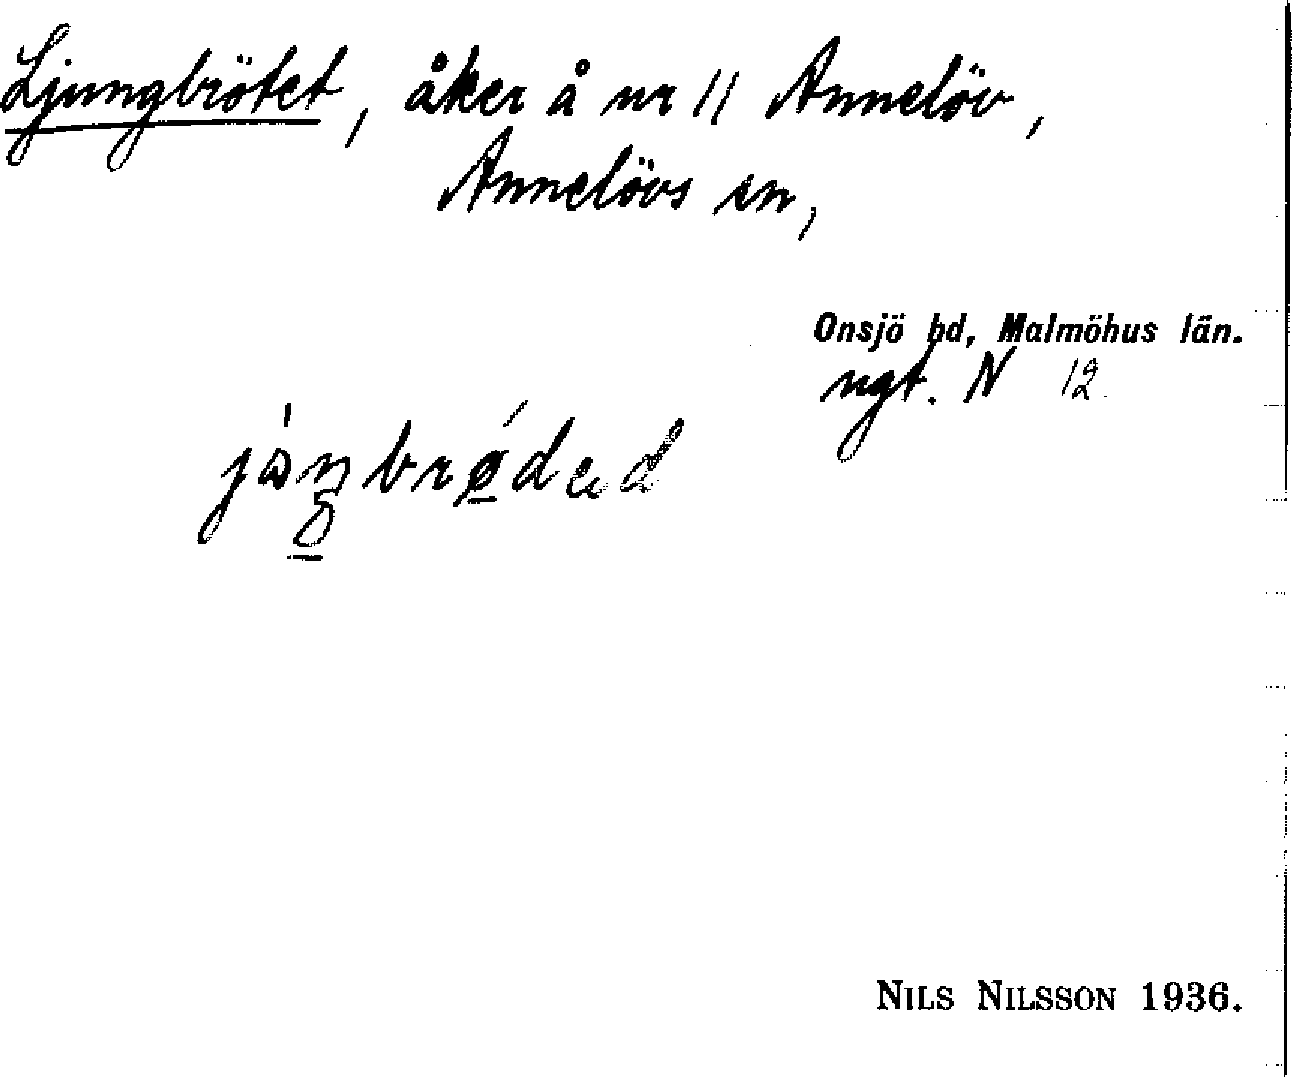 Ljungbrötet, åker å nr 11 Annelöv,
Annelövs sn,
Onsjö hd, Malmöhus län.
ngt. N 12.
NILS NILSSON 1936.